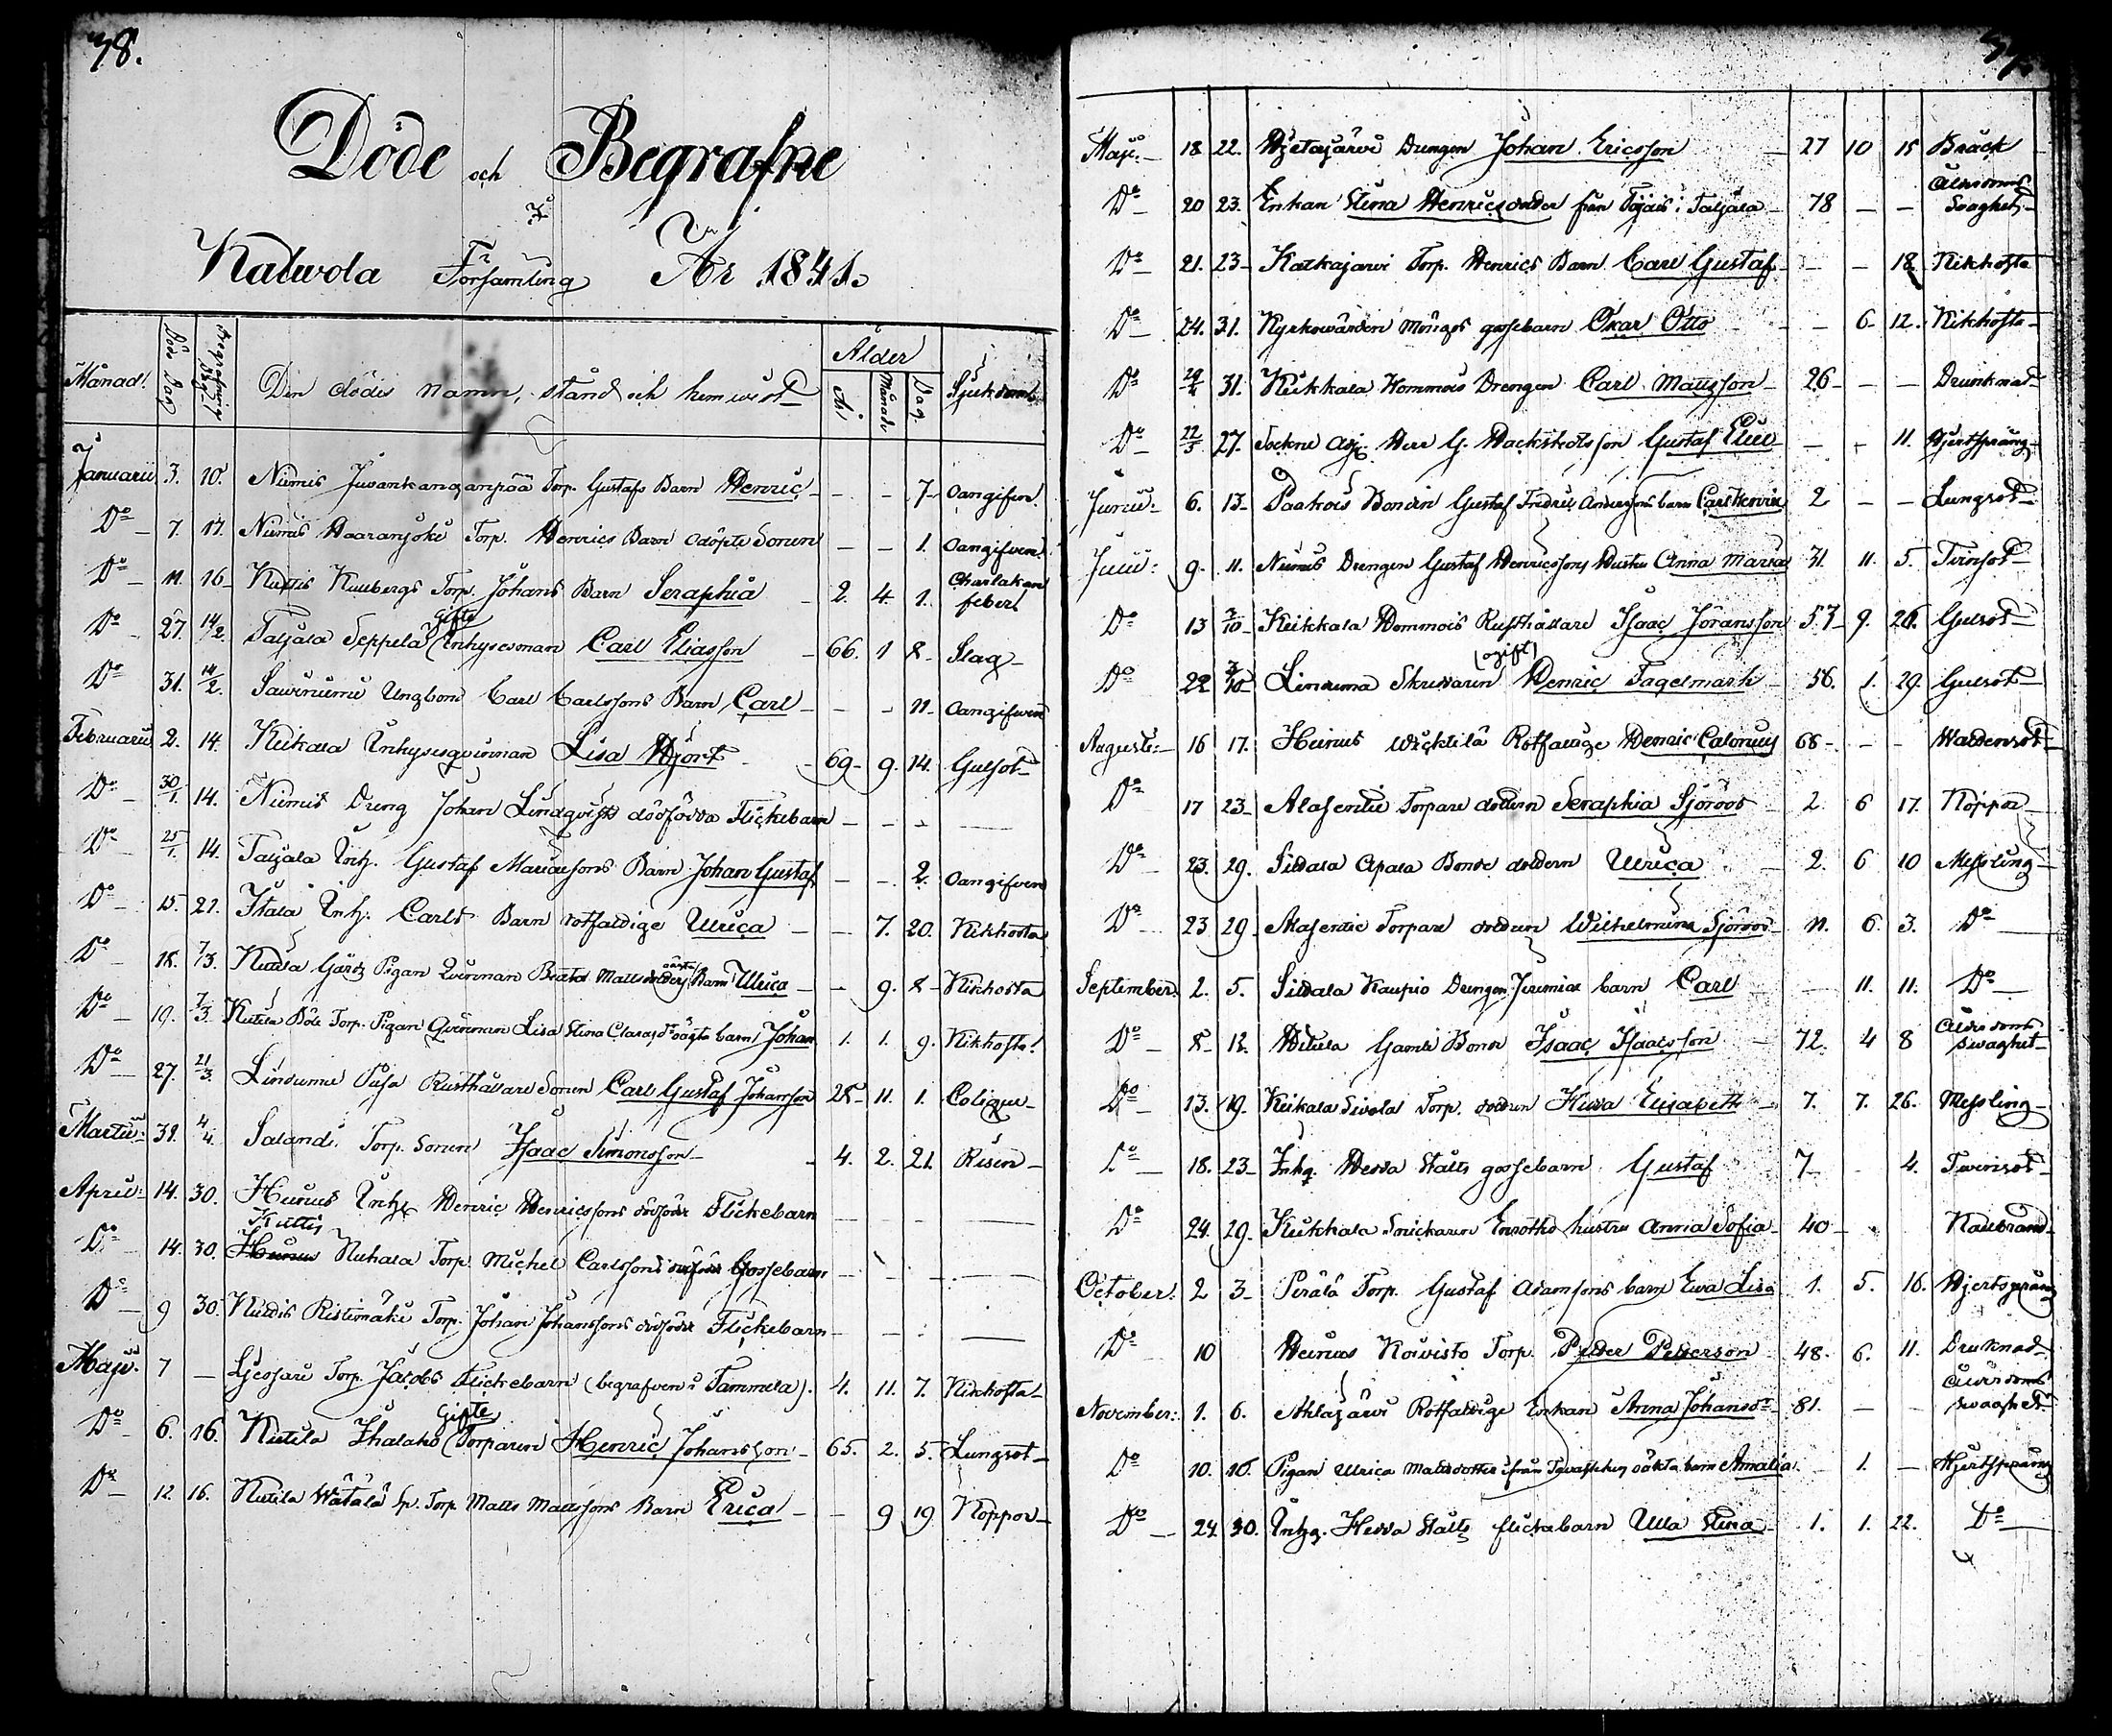 78.
Döde och Begrafne
i
Kalwola Församling År 1841.
Månad. Döde Dag Begrafnings Dag Den dödes namn, stånd och hemwist Ålder Sjukdom
År Månader Dag.
Januarii 3. 10. Niemis Juvankanganpää Torp. Gustafs Barn Henric - - 7 Oangifven.
Do 7. 17. Niemis Haaranjoki Torp. Henrics Barn odöpte Sonen - - 1. Oangifven.
Do 11. 16 Kuttis Kuubergs Torp. Johans Barn Seraphia 2. 4. 1. Charlakans feber.
Do 27. 14/2. Taljala Seppelä (Gifte) Inhysesman Carl Eliasson 66. 1 8 Slag
Do 31. 14/2. Sauvniemi Ungbond Carl Carlssons Barn Carl - - 11 Oangifven
Februarii 2. 14. Keikala Inhysesqvinnan Lisa Hjort 69 9. 14. Gulsot
Do 30/1. 14. Niemis Dreng Johan Lindqvists dödfödda Flickebarn - - -
Do 25/1. 14. Taljala Inh. Gustaf Mariaesons Barn Johan Gustaf - - 2. Oangifven
Do 15. 21. Ittala Inh. Carls Barn rotfaldige Ulrica - 7. 20. Kikhosta
Do 18. 7/3. Gårds Pigan Qvinnan Beata Mattsdotters oäkta Barn Ulrica - 9. 8 Kikhosta
Do 19. 7/3. Kutila Böle Torp. Pigan Qvinnan Lisa Stina Clarasdr oägta barn Johan 1. 1. 9. Kikhosta.
Do 27. 21/3. Lindume Pusa Rusthållare Sonen Carl Gustaf Johansson 28 11. 1. Colique
Martii 31. 4/4. Saland. Torp. Sonen Isaac Simonsson 4. 2. 21. Risen
April: 14. 30. Heinus Inh. Henric Henricssons dödföda Flickebarn - - -
Do 14. 30. Kuttis Nuhala Torp. Michel Carlssons dödföda Gossebarn - - -
Do 9 30. Ristimäki Torp. Johan Johanssons dödföda Flickebarn - - -
Maji. 7 - Torp. Jacobs Flickebarn (begrafven i Tammela). 4. 11. 7. Kikhosta
Do 6. 16. Kutila Ihalahd (Gifte) Torparen Henric Johansson 65. 2. 5. Lungsot
Do 12. 16. Kutila Wätälä Sp. Torp. Matts Mattssons Barn Erica - 9 19 Koppor
Maji. 18 22. Hjetajärvi Drengen Johan Ericsson 27 10 15 Bråck
Do 20 23. Enkan Stina Henricsdotter från Töjäis i Taljala 78 - - Ålderdoms Svaghet
Do 21. 23 Katkajärvi Torp. Henrics Barn Carl Gustaf - - 18 Kikhosta
Do 24. 31. Kyrkowärden gossebarn Oskar Otto - 6 12. Kikhosta
Do 31. Keikkala Hommois Drengen Carl Mattsson 26 - - Drunknad
Do 22/5 27. Sockne Adj. Herr G. Hackstedts son Gustaf Elis - - 11. Hjertsprång
Junii: 6. 13 Paakois Bonden Gustaf Fredric Anderssons barn Carl Henric 2 - - Lungsot
Julii: 9. 11. Niemis Drengen Gustaf Henricssons Hustru Anna Maria 31. 11. 5. Tvinsot
Do 13 Keikkala Hommois Rusthållare Isaac Göransson 57 9. 26. Gulsot
Do 22 Linduma Skredaren (ogift) Henric Fagelmark 56. 1. 29. Gulsot
Augusti: 16 17. Heinus Wicktilä Rotfattige Henric Calonius 68 - - Wattensot
Do 17 23 Alasentie Torpare dottern Seraphia Sjöroos 2. 6 17. Koppor
Do 23. 29. Sittala Apala Bonde dottern Ulrica 2. 6 10 Messling
Do 23 29 Alasentie Torpare dottern Wilhelmina Sjöroos 11. 6. 3. Do
September. 2. 5. Sittala Kaupio Drengen Jeremiae barn Carl 11. 11. Do
Do 8 12. Hitula Gamle Bonde Isaac Isaacsson 72. 4 8 Ålderdoms svaghet
Do 13. 19. Keikala Sivola Torp. dottren Hedda Elisabeth 7. 7. 26. Messling
Do 18. 23 Inhq. Hedda Ståhls gossebarn Gustaf 7 4. Tvinsot
Do 24. 29. Keikkala Snickaren hustru Anna Sofia 40 Kallbrand
October. 2 3 Perälä Torp. Gustaf Adamsons barn Ewa Lisa 1. 5. 16. Hjertsprång
Do 10 Heinus Koivisto Torp. Petter Petterson 48. 6. 11. Drunknad
November: 1. 6. Ahlajärvi Rotfattige Enkan Anna Johansdr 81. - - Ålderdoms svaghet
Do 10. 16. Pigan Ulrica Mattsdotter ifrån Tavastehus oäkta barn Amalia. 1. - Hjertsprång
Do 24. 30. Inhq. Hedda Ståhls flickebarn Ulla Stina 1. 1. 22. Do